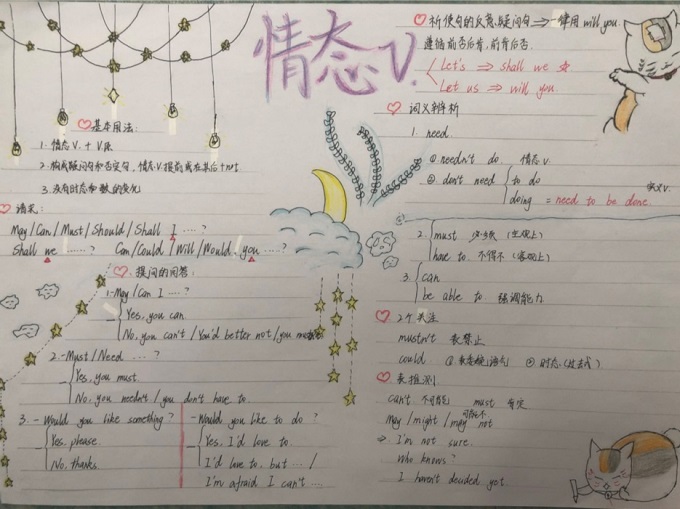 情态V.
♡基本用法:
1. 情态V. + V原
2. 构成疑问句和否定句, 情态V.提前或在其后+n't.
3. 没有时态和数的变化
♡请求:
May/Can/Must/Should/Shall I ....?
Shall we ......? Can/Could/Will/Would you ....?
♡. 提问的问答:
1. -May/Can I ....?
Yes, you can
No, you can't / You'd better not / you mustn't
2. -Must/Need ...?
Yes, you must
No, you needn't / you don't have to.
3. - Would you like something?
Yes. please.
No, thanks.
- Would you like to do?
Yes, I'd love to
I'd love to, but ... /
I'm afraid I can't ....
♡祈使句的反意疑问句 ⇒ 一律用 will you.
遵循前否后肯, 前肯后否.
Let's ⇒ shall we ☆
Let us ⇒ will you
♡ 词义辨析
1. need.
① needn't do 情态V.
② don't need to do
doing = need to be done. 实义V.
2. must 必须 (主观上)
have to. 不得不 (客观上)
3. can
be able to. 强调能力
♡ 2个关注
mustn't 表禁止
could ① 表委婉语气 ② 时态(过去式)
♡ 表推测
can't. 不可能 must 肯定
May/might/may not 可能不
⇒ I'm not sure.
Who knows?
I haven't decided yet.